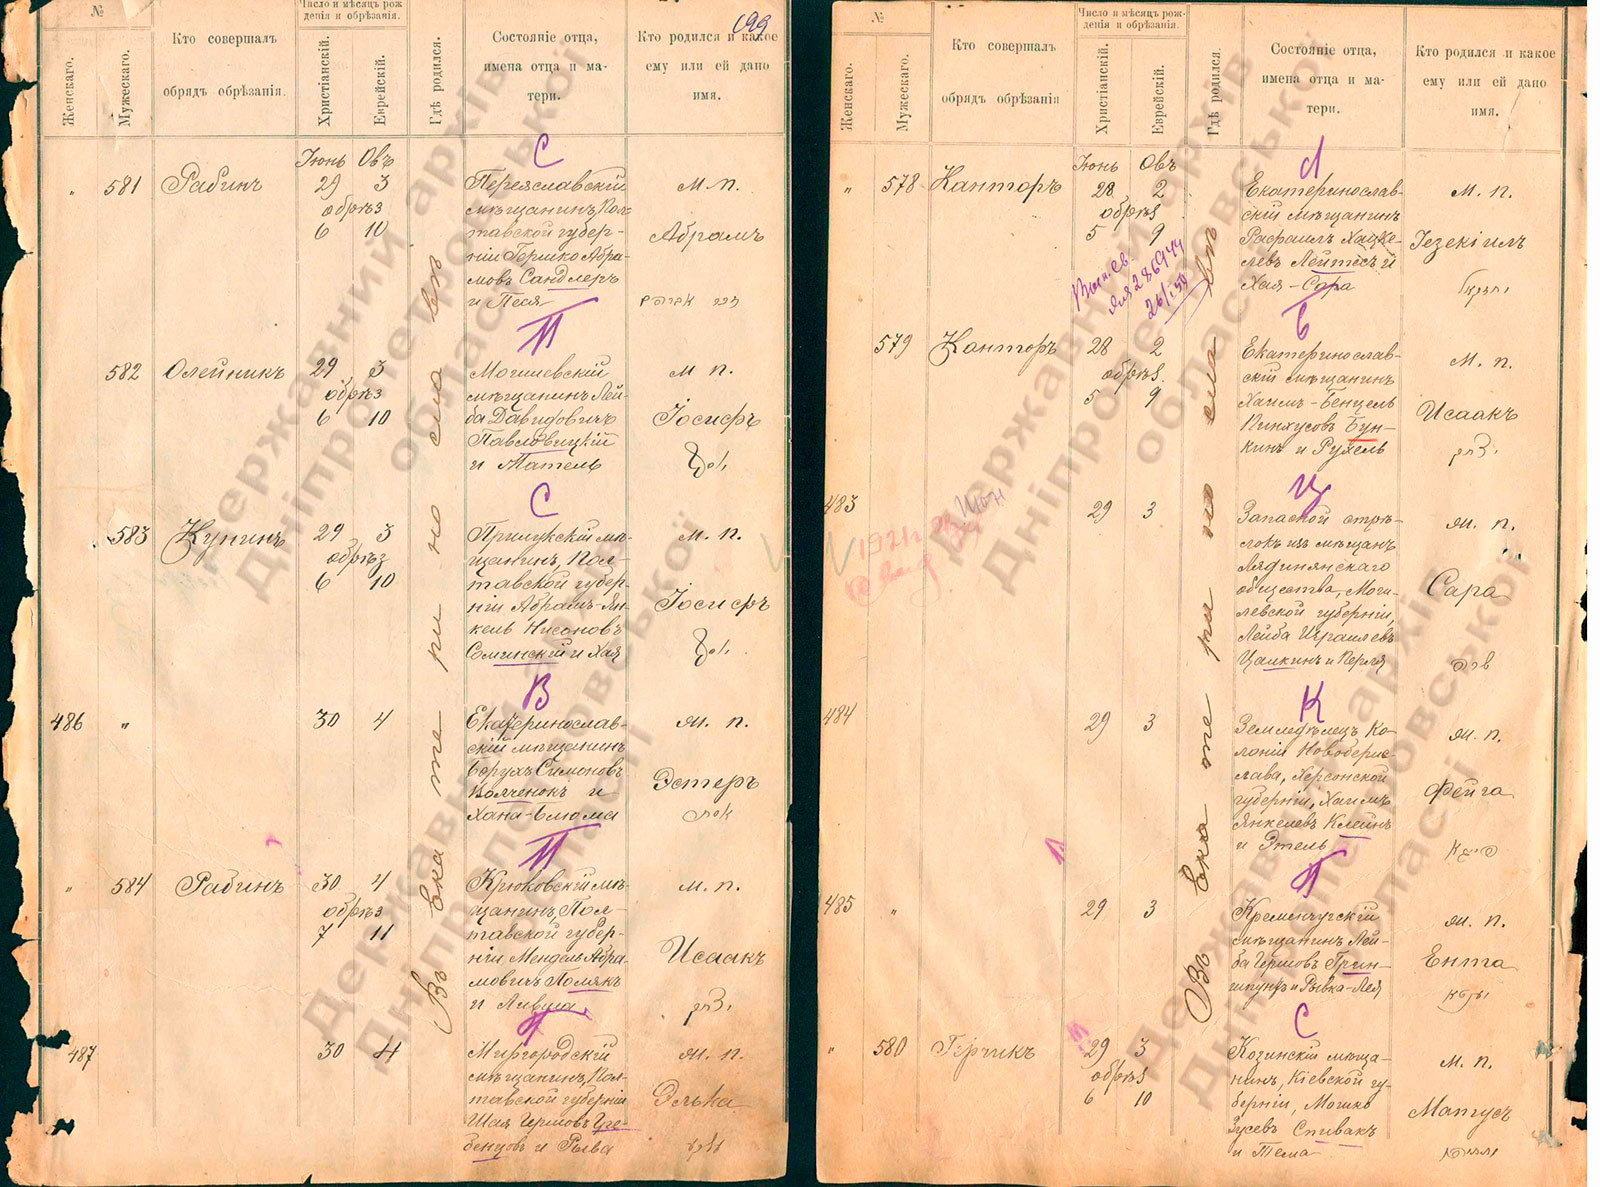 №
199
Женскаго.
Мужескаго.
Кто совершалъ
обрядъ обрѣзанія.
Число и мѣсяцъ рож
денія и обрѣзанія.
Христіанскій.
Еврейскій.
Гдѣ родился.
Состояніе отца,
имена отца и ма-
тери.
Кто родился и какое
ему или ей дано
имя.
Въ Екатеринославѣ
С
" 581 Рабинъ
Іюнь Овъ
29 3
обрѣз
6 10
Переяславскій
мѣщанинъ, Пол-
тавской губер-
ніи Гершко Абра-
мовъ Сандлеръ
и Песя
м. п.
Абрамъ
П
582 Олейникъ
29 3
обрѣз
6 10
Могилевскій
мѣщанинъ Лей-
ба Давидовичъ
Павловицкій
и Матель
м п.
Іосифъ
С
583 Кунинъ
29 3
обрѣз
6 10
Прилукскій мѣ-
щанинъ, Пол-
тавской губер-
ніи Абрамъ-Ян-
кель Нисоновъ
Соминскій и Хая
м. п.
Іосифъ
В
486 "
30 4
Екатеринослав-
скій мѣщанинъ
Борухъ Симоновъ
Волченокъ и
Хана-Блюма
м. п.
Эстеръ
П
" 584 Рабинъ
30 4
обрѣз
7 11
Крюковскій мѣ-
щанинъ, Пол-
тавской губер-
ніи Мендель Абра-
мовичъ Полякъ
и Ливша
м. п.
Исаакъ
487
30 4
Миргородскій
мѣщанинъ, Пол-
тавской губерніи
Шая Гершовъ Гре-
бенцовъ и Рыва
м. п.
Элька
№
Женскаго.
Мужескаго.
Кто совершалъ
обрядъ обрѣзанія
Число и мѣсяцъ рож-
денія и обрѣзанія.
Христіанскій.
Еврейскій.
Гдѣ родился.
Состояніе отца,
имена отца и ма-
тери.
Кто родился и какое
ему или ей дано
имя.
Въ Екатеринославѣ
Л
" 578 Канторъ
Іюнь Овъ
28 2
обрѣз
5 9
Екатеринослав-
скій мѣщанинъ
Рафаилъ Хацке-
левъ Лейтесъ и
Хая-Сара
м. п.
Іезекіилъ
Б
579 Канторъ
28 2
обрѣз.
5 9
Екатеринослав-
скій мѣщанинъ
Хаимъ-Бенцель
Пинхусовъ Бун-
кинъ и Рухель
м. п.
Исаакъ
Ц
483
29 3
Запасной стрѣ-
локъ изъ мѣщанъ
Лядинянскаго
общества, Моги-
левской губерніи,
Лейба Израилевъ
Цалкинъ и Перля
м. п.
Сара
К
484
29 3
Земледѣлецъ ко-
лоніи Новоберис-
лава, Херсонской
губерніи, Хаимъ
Янкелевъ Клейнъ
и Этель
м. п.
Фейга
485 "
29 3
Кременчугскій
мѣщанинъ Лей-
ба Гершовъ Грин-
шпунъ и Рывка-Лея
м. п.
Ента
С
" 580 Герчикъ
29 3
обрѣз
6 10
Козинскій мѣща-
нинъ, Кіевской гу-
берніи, Мошко
Зусевъ Спивакъ
и Тема
м. п.
Матусъ
Державний архів
Дніпропетровської
області